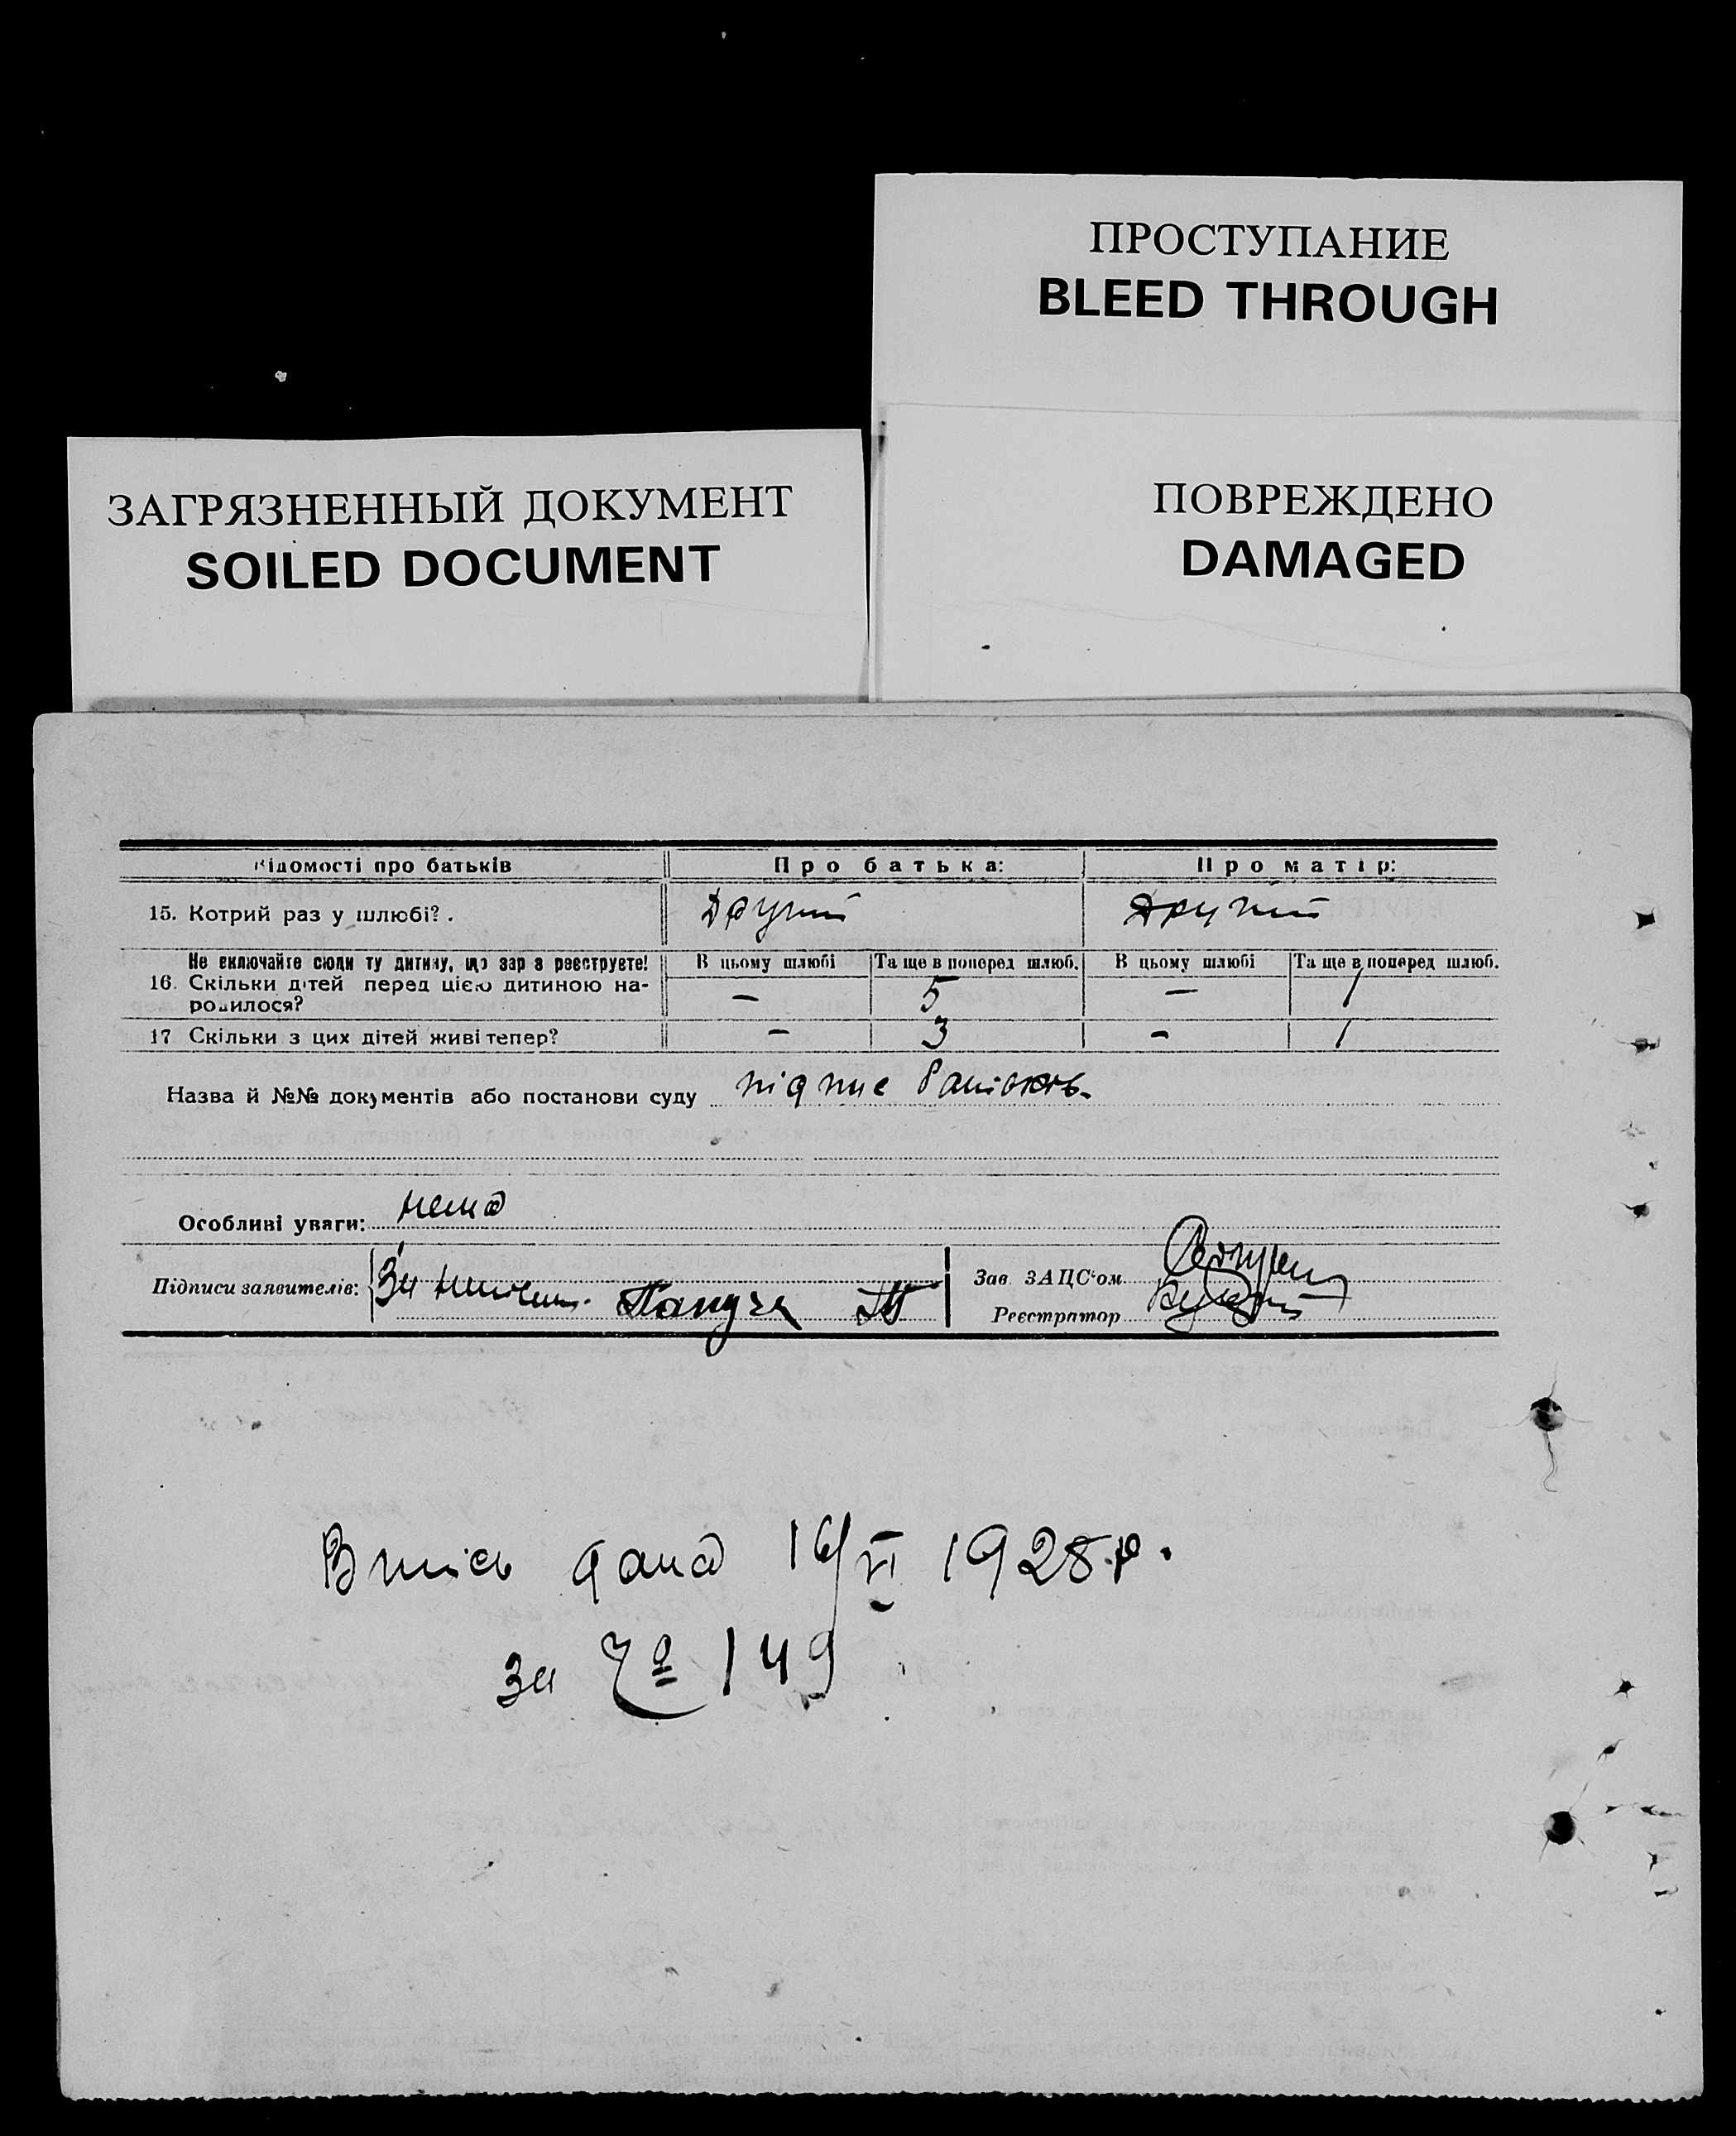 ПРОСТУПАНИЕ
BLEED THROUGH
ЗАГРЯЗНЕННЫЙ ДОКУМЕНТ
SOILED DOCUMENT
ПОВРЕЖДЕНО
DAMAGED
Відомості про батьків Про батька: Про матір:
15. Котрий раз у шлюбі?. Другий Другий
Не включайте сюди ту дитину, що зараз реєструєте! В цьому шлюбі Та ще в поперед шлюб. В цьому шлюбі Та ще в поперед шлюб.
16. Скільки дітей перед цією дитиною на-
родилося? — 5 — 1
17 Скільки з цих дітей живі тепер? — 3 — 1
Назва й №№ документів або постанови суду підпис батьків
Особливі уваги: нема
Підписи заявителів: За Зав ЗАЦС'ом
Реєстратор
Впись дана 16/VI 1928 р.
за № 149